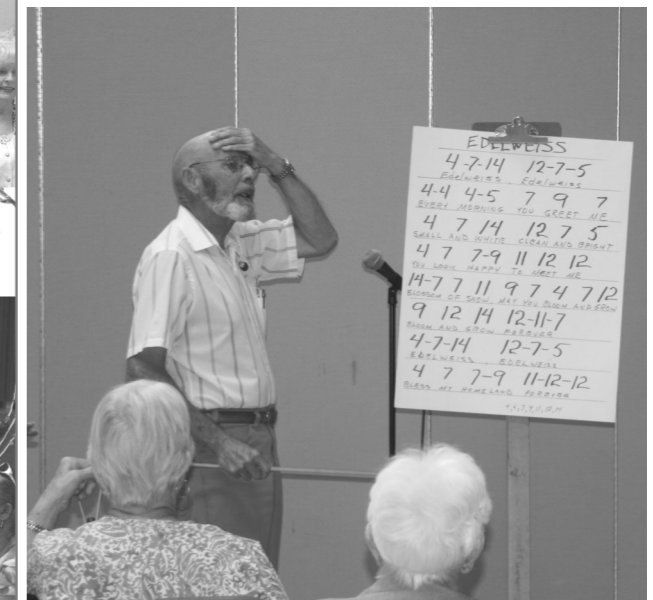 EDELWEISS
4-7-14 12-7-5
EDELWEISS EDELWEISS
4-4 4-5 7 9 7
EVERY MORNING YOU GREET ME
4 7 14 12 7 5
SMALL AND WHITE CLEAN AND BRIGHT
4 7 7-9 11 12 12
YOU LOOK HAPPY TO MEET ME
14-7 7 11 9 7 4 7 12
BLOSSOM OF SNOW, MAY YOU BLOOM AND GROW
9 12 14 12-11-7
BLOOM AND GROW FOREVER
4-7-14 12-7-5
EDELWEISS EDELWEISS
4 7 7-9 11-12-12
BLESS MY HOMELAND FOREVER